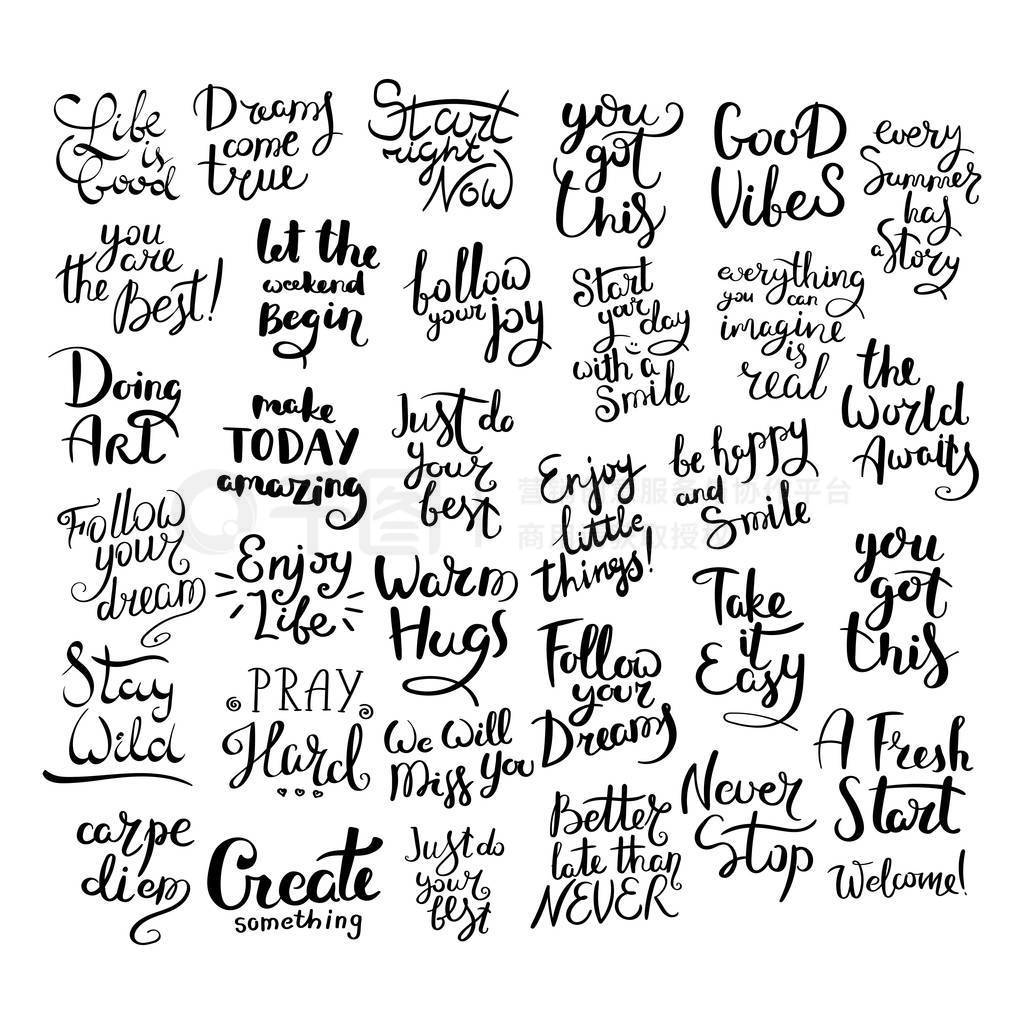 Life
is
Good
Dreams
come
true
Start
right
Now
you
got
this
GOOD
VibeS
every
Summer
has
a Story
you
are
the Best!
let the
weekend
Begin
follow
your joy
Start
your day
with a
Smile
everything
you can
imagine
is
real
the
World
Awaits
Doing
Art
make
TODAY
amazing
Just do
your
best
Enjoy
little
things!
be happy
and
Smile
Follow
your
dream
Enjoy
Life
Warm
Hugs
Follow
your
Dreams
Take
it
Easy
you
got
this
Stay
Wild
PRAY
Hard
We Will
Miss You
Better
late than
NEVER
Never
Stop
A Fresh
Start
carpe
diem
Create
something
Just do
your
best
Welcome!